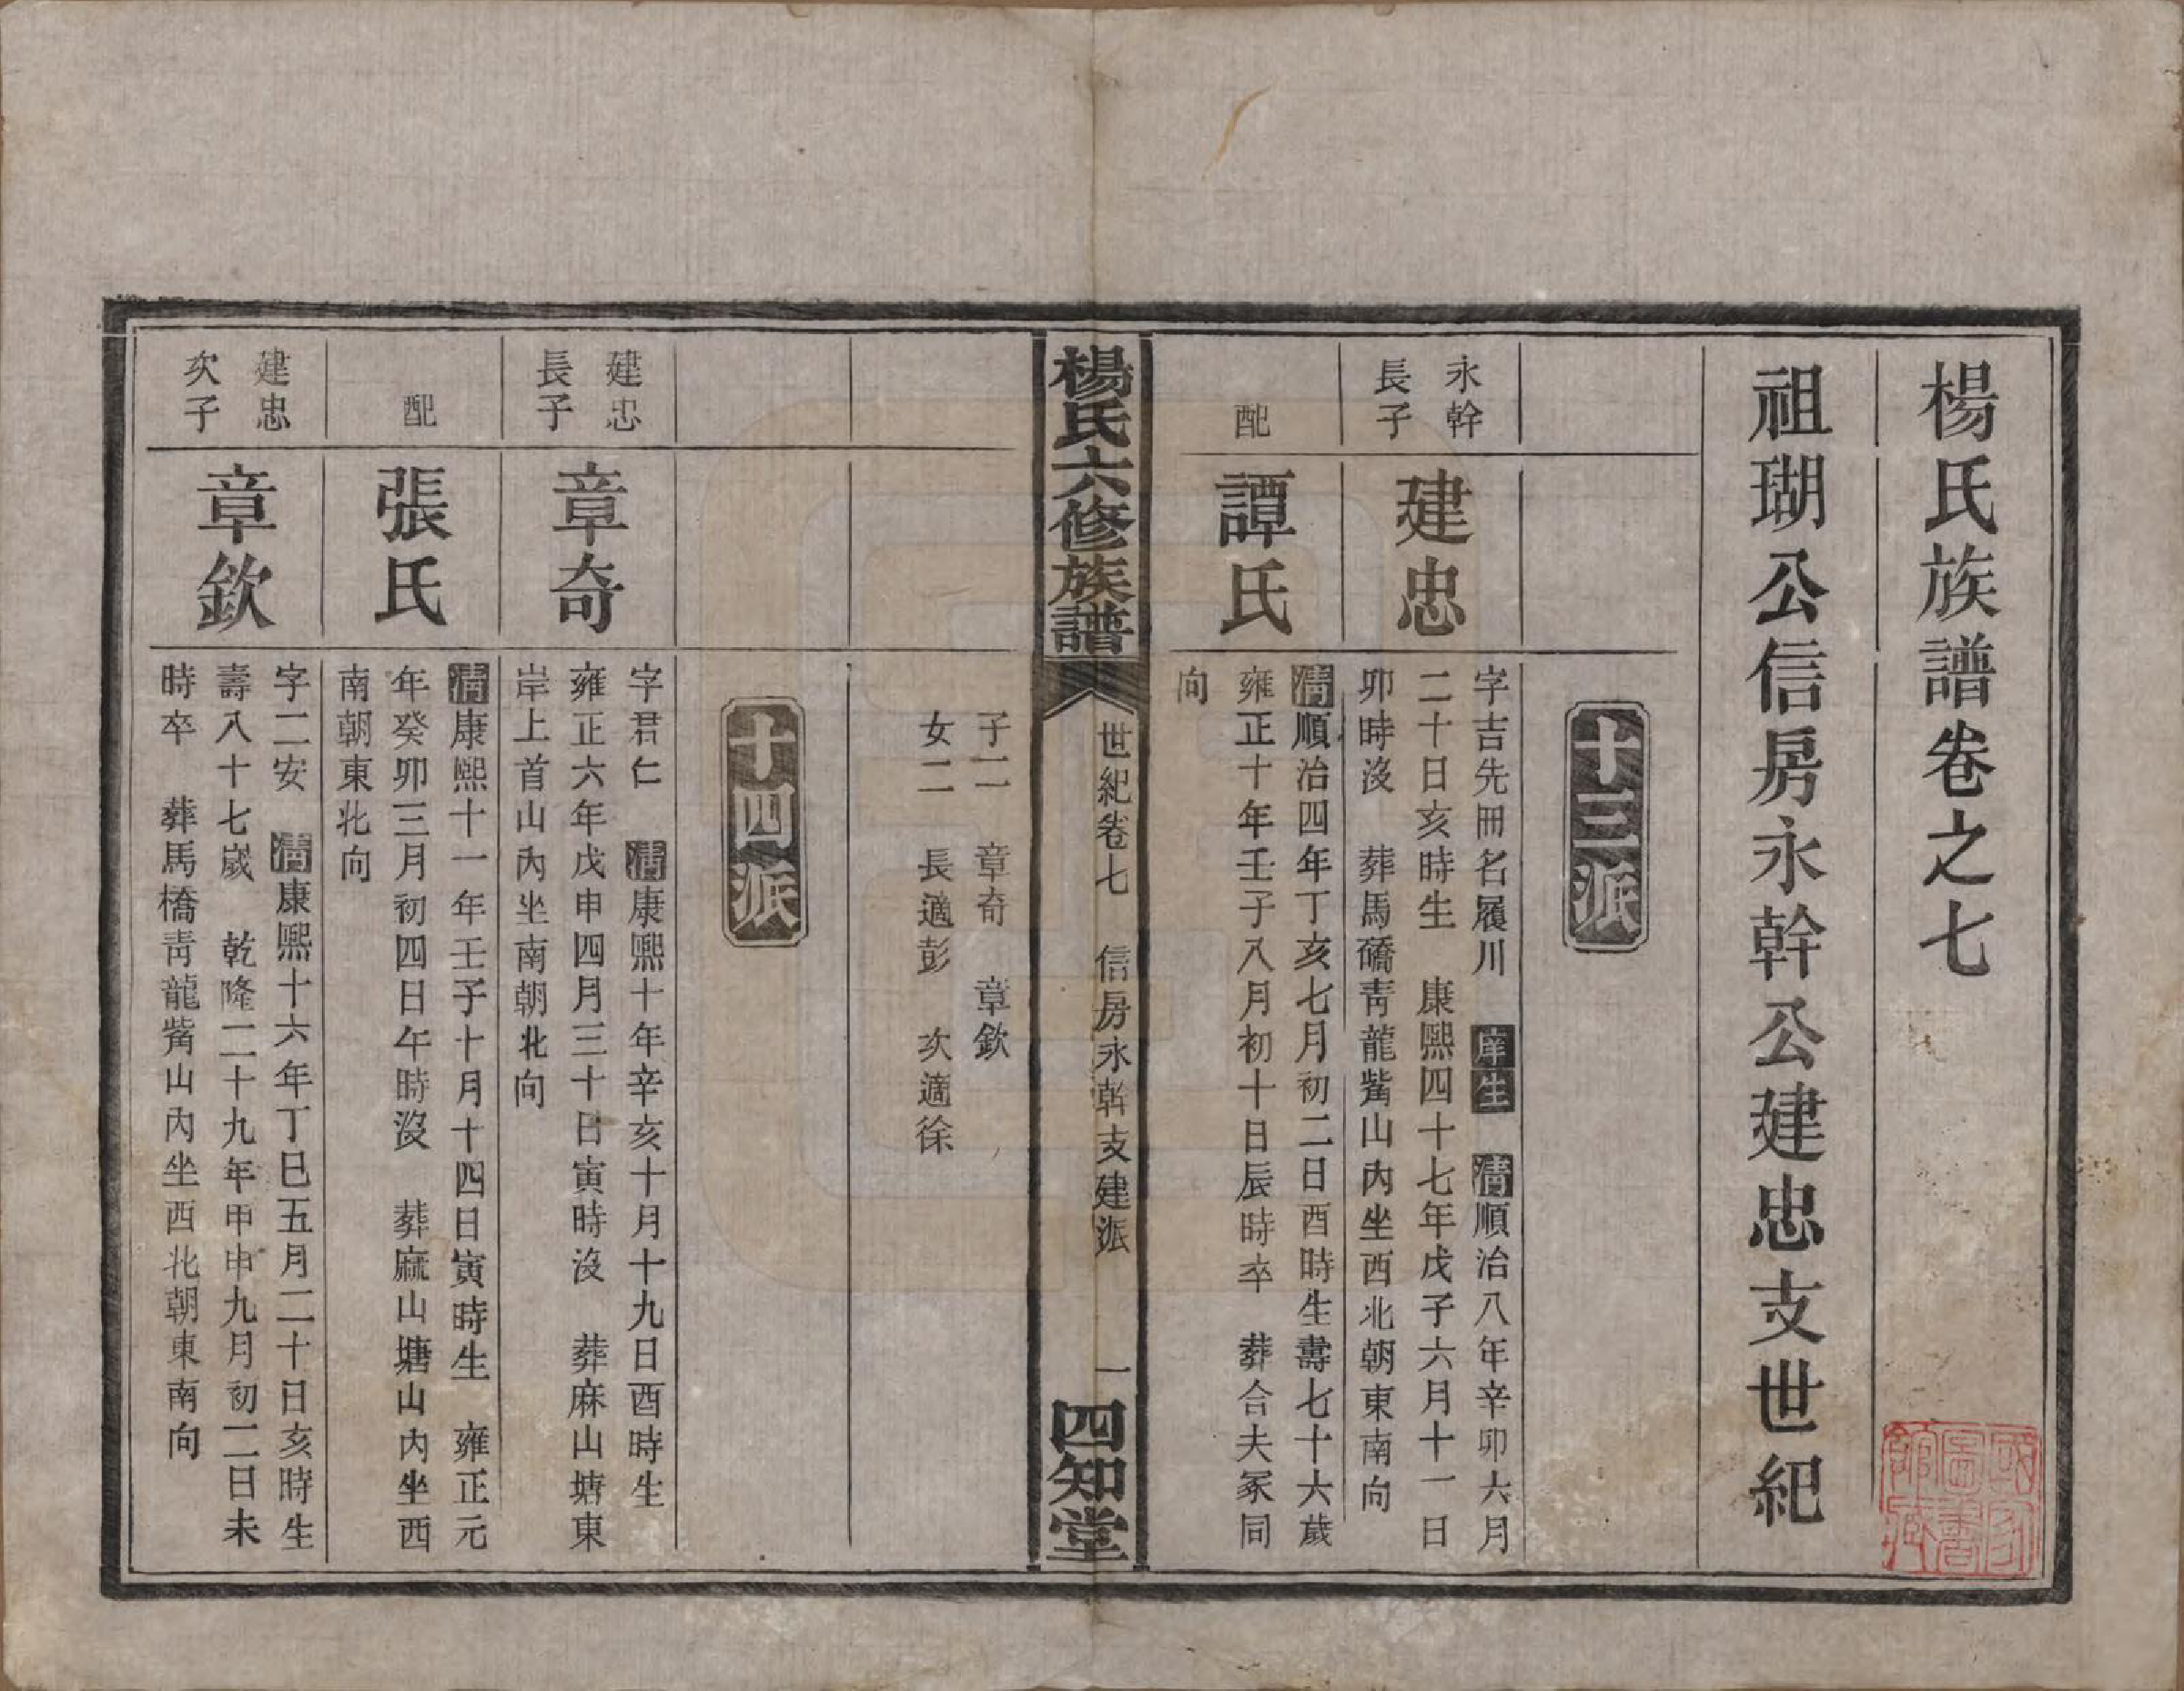 楊氏族譜卷之七
祖瑚公信房永幹公建忠支世紀
十三派
永幹
長子
建忠
字吉先冊名履川 庠生 清順治八年辛卯六月
二十日亥時生 康熙四十七年戊子六月十一日
卯時沒 葬馬礄靑龍觜山內坐西北朝東南向
配
譚氏
清順治四年丁亥七月初二日酉時生壽七十六歲
雍正十年壬子八月初十日辰時卒 葬合夫冢同
向
楊氏六修族譜
世紀卷七 信房永幹支建派
一
四知堂
子二 章奇 章欽
女二 長適彭 次適徐
十四派
建忠
長子
章奇
字君仁 清康熙十年辛亥十月十九日酉時生
雍正六年戊申四月三十日寅時沒 葬麻山塘東
岸上首山內坐南朝北向
配
張氏
清康熙十一年壬子十月十四日寅時生 雍正元
年癸卯三月初四日午時沒 葬麻山塘山內坐西
南朝東北向
建忠
次子
章欽
字二安 清康熙十六年丁巳五月二十日亥時生
壽八十七歲 乾隆二十九年甲申九月初二日未
時卒 葬馬橋靑龍觜山內坐西北朝東南向
國家
圖書
館藏